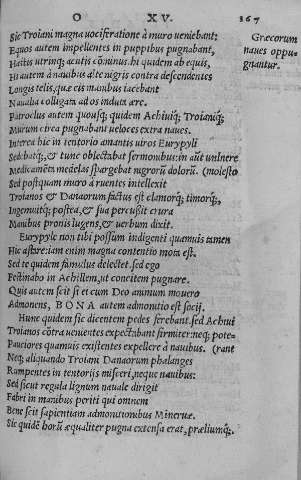 O XV. 367
Sic Troiani magna uociferatione à muro ueniebant:
Equos autem impellentes in puppibus pugnabant,
Hastis utrinq; acutis cominus. hi quidem ab equis,
Hi autem à nauibus altè nigris contra descendentes
Longis telis, quæ eis manibus iacebant
Naualia colligata ad os induta ære.
Patroclus autem quousq; quidem Achiuiq; Troianiq;
Murum circa pugnabant ueloces extra naues.
Interea hic in tentorio amantis uiros Eurypyli
Sedebatq;, & tunc oblectabat sermonibus: in aūt uulnere
Medicamēta medelas spargebat nigrorū dolorū. (molesto
Sed postquam muro à ruentes intellexit
Troianos & Danaorum factus est clamorq; timorq;,
Ingemuitq; postea, & sua percußit crura
Manibus pronis lugens, & uerbum dixit.
Eurypyle non tibi possum indigenti quamuis tamen
Hic astare: iam enim magna contentio mota est.
Sed te quidem famulus delectet. sed ego
Festinabo in Achillem, ut concitem pugnare.
Quis autem scit si et cum Deo animum mouero
Admonens, BONA autem admonitio est socij.
Hunc quidem sic dicentem pedes ferebant. sed Achiui
Troianos cōtra uenientes expectabant firmiter: neq; pote-
Pauciores quamuis existentes expellere à nauibus. (rant
Neq; aliquando Troiani Danaorum phalanges
Rumpentes in tentorijs misceri, neque nauibus:
Sed sicut regula lignum nauale dirigit
Fabri in manibus periti qui omnem
Bene scit sapientiam admonitionibus Mineruæ.
Sic quidē horū æqualiter pugna extensa erat, præliumq;.
Græcorum
naues oppu-
gnantur.